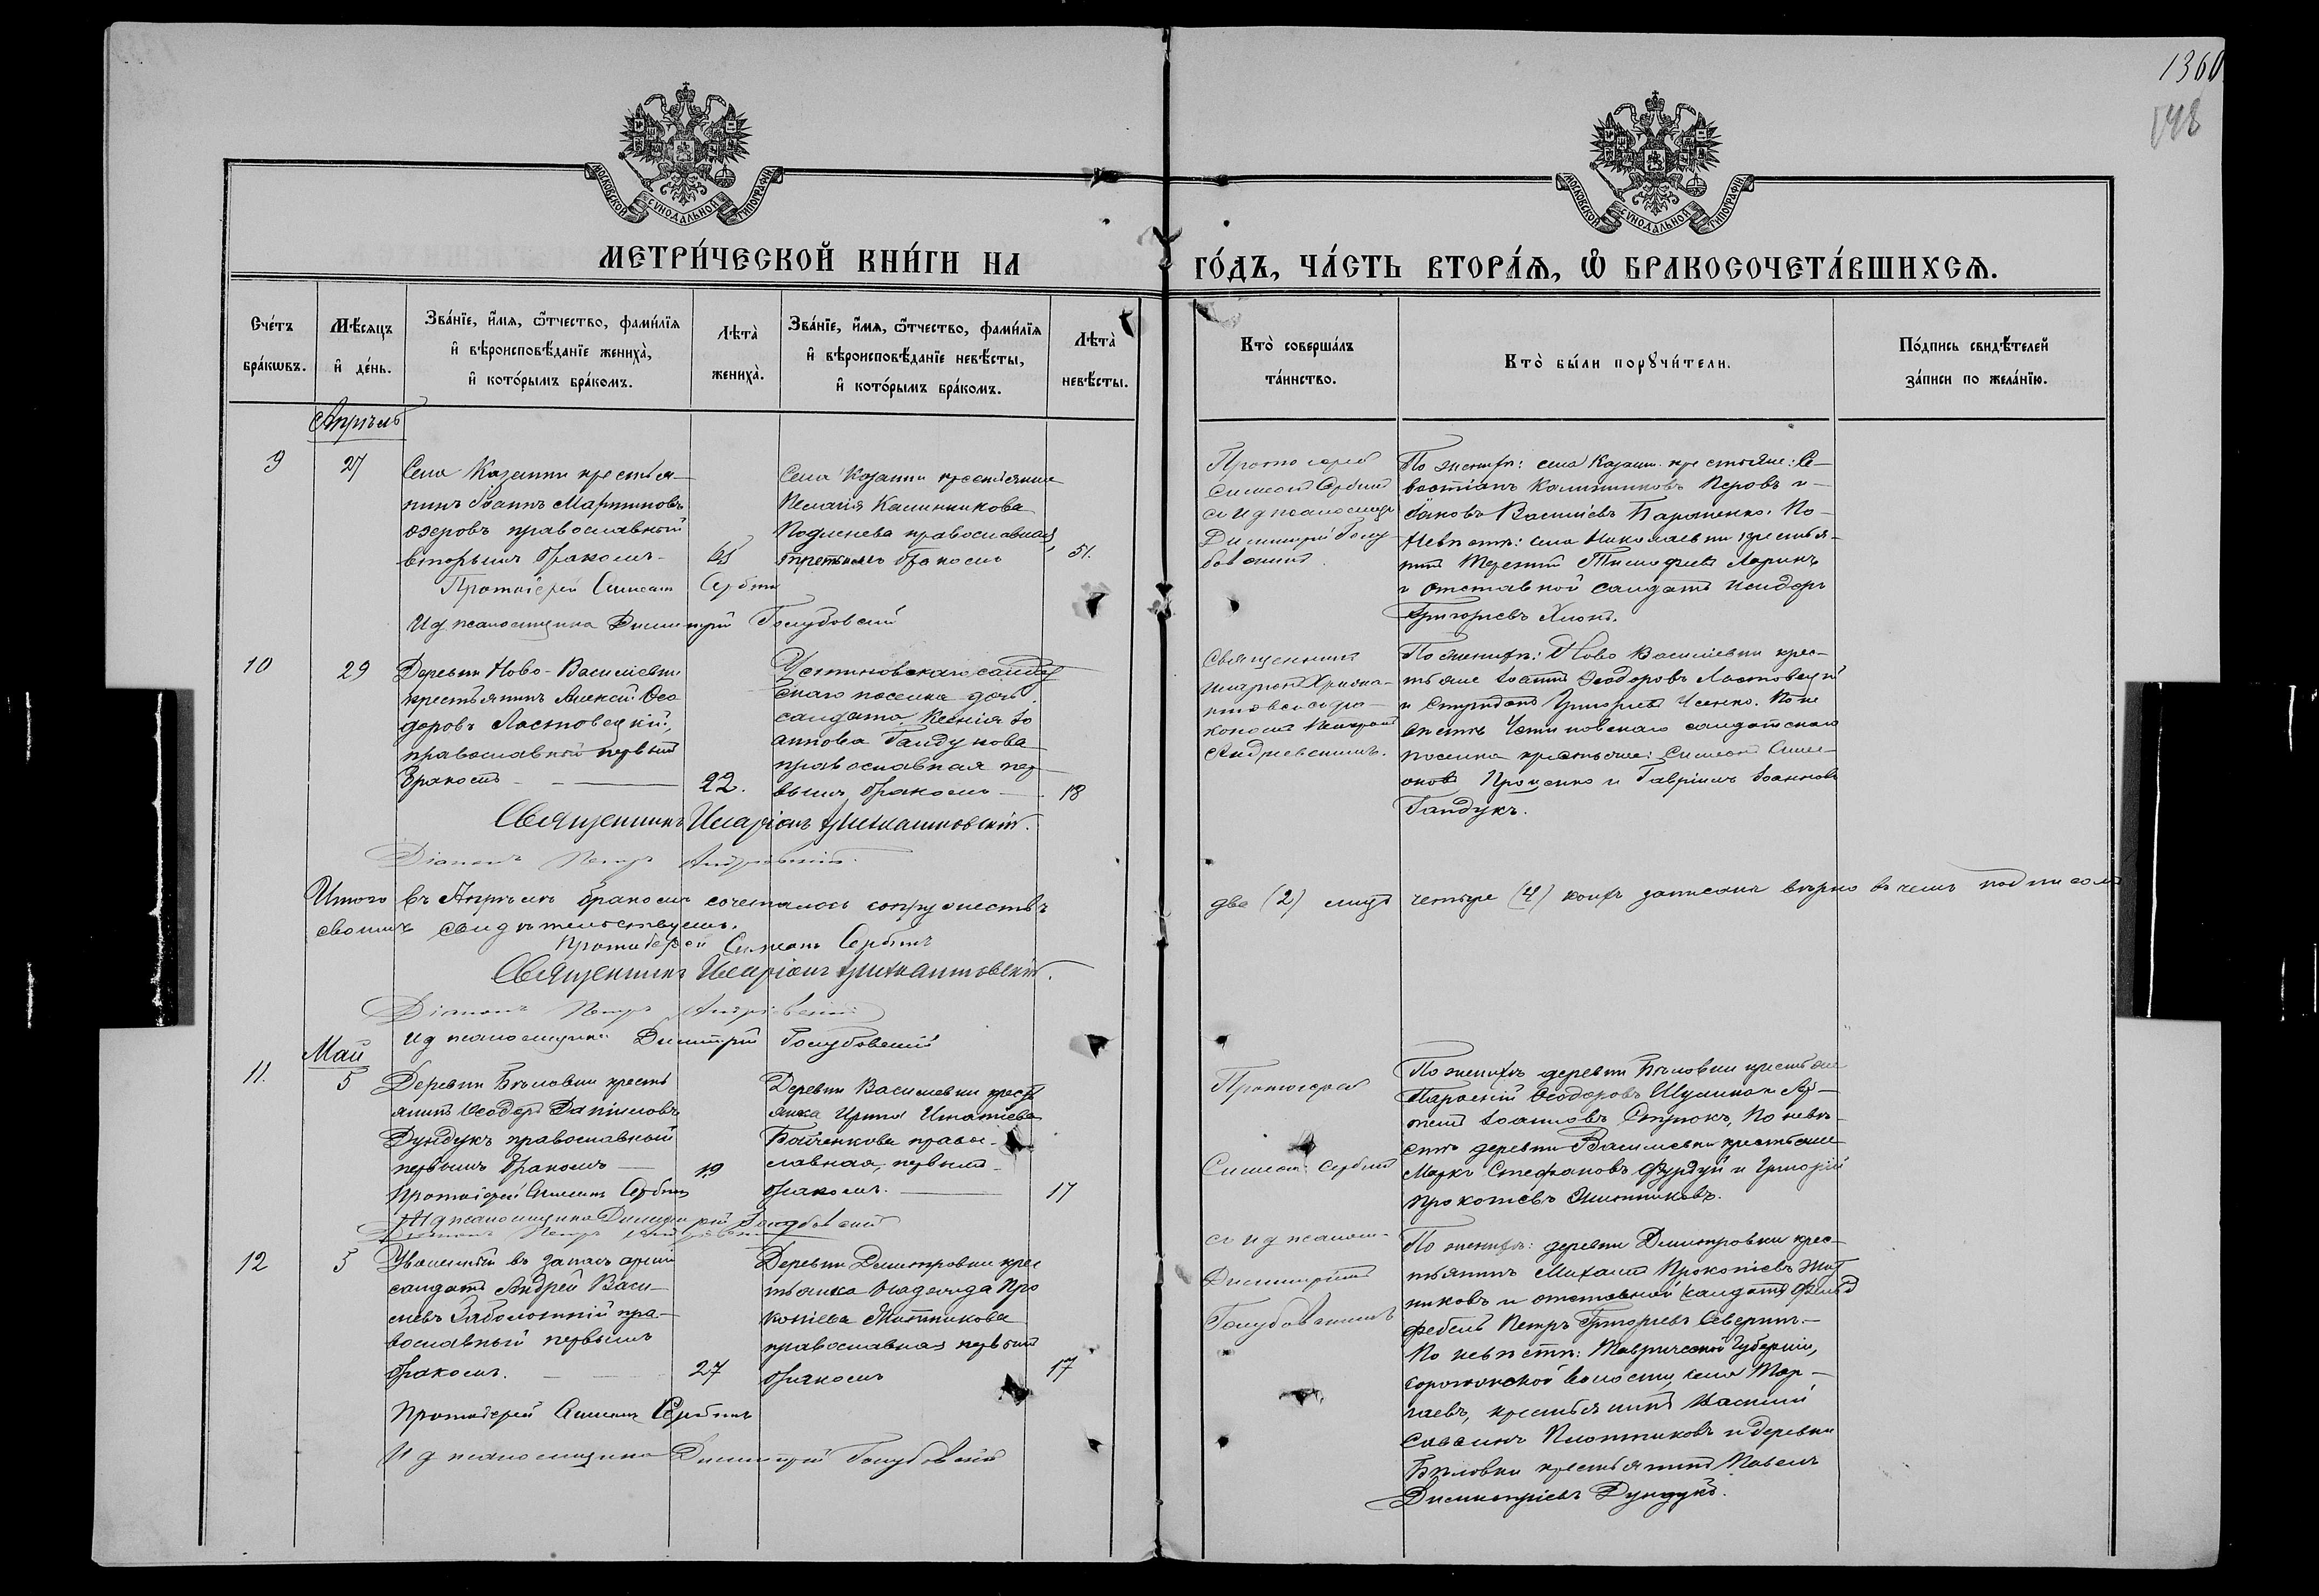 1360
148
МОСКОВСКОЙ СУНОДАЛЬНОЙ ТИПОГРАФІИ.
МОСКОВСКОЙ СУНОДАЛЬНОЙ ТИПОГРАФІИ.
МЕТРИ́ЧЕСКОЙ КНИ́ГИ НА ГО́ДЪ, ЧА́СТЬ ВТОРА́Ѧ, Ѽ БРАКОСОЧЕТА́ВШИХСѦ.
Сче́тъ бра́кѡвъ.
Мѣ́сяцъ и҆ де́нь.
Зва́нїе, и҆́мѧ, ѻ҆́тчество, фами́лїѧ
и҆ вѣроисповѣ́данїе жениха̀,
и҆ кото́рымъ бра́комъ.
Лѣта̀ жениха̀.
Зва́нїе, и҆́мѧ, ѻ҆́тчество, фами́лїѧ
и҆ вѣроисповѣ́данїе невѣ́сты,
и҆ кото́рымъ бра́комъ.
Лѣта̀ невѣ́сты.
Кто̀ соверша́лъ та́инство.
Кто̀ бы́ли порꙋчи́тели.
По́дпись свидѣ́телей за́писи по жела́нїю.
Апрѣль
9
27
Села Казанки крестья-
нинъ Іоаннъ Мартиновъ
Озеровъ православный
вторымъ бракомъ
Села Казанки крестьянка
Пелагія Калинникова
православная,
третьимъ бракомъ
51.
Протоіерей
Симеонъ Сербинъ
съ и д псаломщ
Димитрій Голу-
бовскимъ
По женихѣ: села Казанк. крестьяне: Се-
вастіанъ Калинниковъ Перовъ и
Іаковъ Василіевъ Пароменко. По
невѣстѣ: села Николаевки крестья-
нинъ Терентій Тимофеевъ Ларинъ
и отставной солдатъ Исидоръ
Григорьевъ
Протоіерей Симеонъ Сербинъ
И д псаломщика Димитрій Голубовскій
10
29
Деревни Ново-Василіевки
крестьянинъ Алексій Ѳео-
доровъ Ластовецкій,
православный первымъ
бракомъ
22.
Устиновскаго солдат
скаго поселка дочь
солдата Ксенія Іо
аннова Гандукова
православная пер-
вымъ бракомъ
18
Священникъ
Иларіонъ
Петромъ
Андріевскимъ.
По женихѣ: Ново Василіевки крес-
тьяне Іоаннъ Ѳеодоровъ Ластовецкій
и Григорій Усенко. По не
вѣстѣ Устиновскаго солдатскаго
поселка крестьяне: Симеонъ Симе-
оновъ Проценко и Гавріилъ Іоанновъ
Гандукъ.
Священникъ Иларіонъ
Діаконъ Петръ Андріевскій.
Итого въ Апрѣлѣ бракомъ сочеталось супружествъ два (2) лицъ четыре (4) коихъ записана вѣрно въ чемъ подписомъ
своимъ свидѣтельствуемъ.
Протоіерей Симеонъ Сербинъ
Священникъ Иларіонъ
Діаконъ Петръ Андріевскій
И д псаломщика Димитрій Голубовскій
Май
11.
5
Деревни Бѣловки кресть
янинъ Ѳеодоръ Даніиловъ
Дундукъ православный
первымъ бракомъ
19
Деревни Василіевки крест
янка Ирина Игнатіева
Байченкова право-
славная, первымъ
бракомъ.
17
Протоіерей
Симеонъ Сербинъ
съ и д псалом-
Димитріемъ
Голубовскимъ
По женихѣ деревни Бѣловки крестьяне
Тарасій Ѳеодоровъ и Ар-
темъ Іоанновъ По невѣ-
стѣ деревни Василіевки крестьяне
Маркъ Стефановъ Фурдуй и Григорій
Прокопіевъ Житниковъ.
Протоіерей Симеонъ Сербинъ
И д псаломщика Димитрій Голубовскій
Діаконъ Петръ Андріевскій
12
5
Уволенный въ запасъ арміи
солдатъ Андрей Васи-
ліевъ Заболотній пра-
вославный первымъ
бракомъ.
27
Деревни Димитровки крес
тьянка Надежда Про
копіева Житникова
православная первымъ
бракомъ
17
По женихѣ: деревни Димитровки крес-
тьянинъ Михаилъ Прокопіевъ Жит
никовъ и отставной солдатъ Фельд
фебель Петръ Григорьевъ Северинъ.
По невѣстѣ: Таврической Губерніи,
волости, села
крестьянинъ Василій
Савелинъ Плотниковъ и деревни
Бѣловки крестьянинъ Павелъ
Димитріевъ Дундукъ.
Протоіерей Симеонъ Сербинъ
И д псаломщика Димитрій Голубовскій